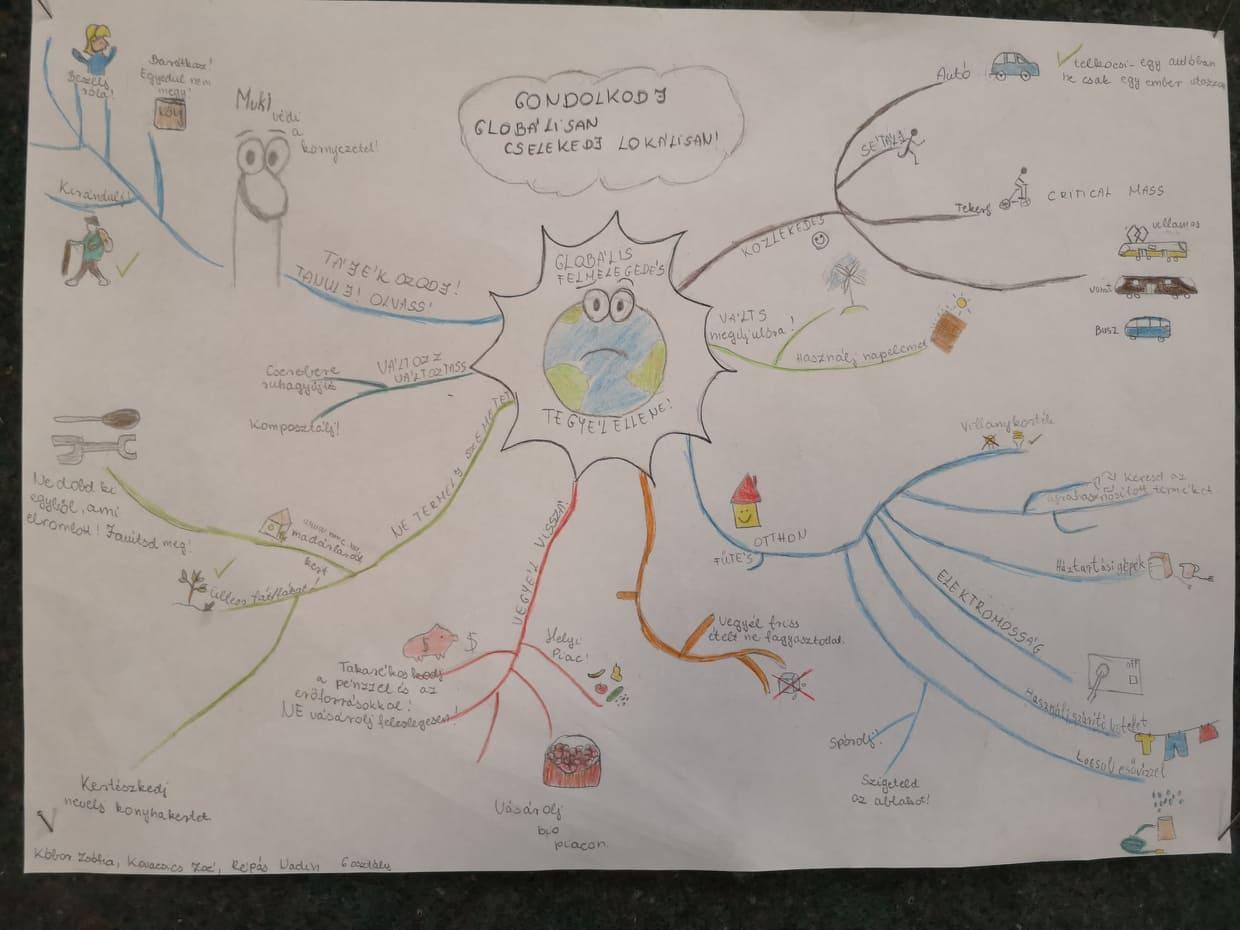 GONDOLKODJ
GLOBÁLISAN
CSELEKEDJ LOKÁLISAN!
GLOBÁLIS
FELMELEGEDÉS
TEGYÉL ELLENE!
Beszélj
róla!
Barátkozz!
Egyedül nem
megy!
Muki
védi
a
környezetet!
Kirándulj!
TÁJÉKOZODJ!
TANULJ! OLVASS!
KÖZLEKEDÉS
Autó
telekocsi - egy autóban
ne csak egy ember utazzon
SÉTÁLJ
Tekerj
CRITICAL MASS
villamos
vonat
BUSZ
VÁLTS
megújulóra!
Használj napelemet
VÁLTOZZ
VÁLTOZTASS
Cserebere
ruhagyűjtés
Komposztálj!
NE TERMELJ SZEMETET
Ne dobd ki
egyből, ami
elromlott! Javítsd meg!
madárbarát
kert
Ültess fát!
Kertészkedj
nevelj konyhakertet
VEGYÉL VISSZA!
$
$
Takarékoskodj
a pénzzel és az
erőforrásokkal!
NE vásárolj feleslegesen!
Helyi
Piac!
Vásárolj
bio
piacon.
Vegyél friss
ételt ne fagyasztottat.
OTTHON
FŰTÉS
Spórolj!
Szigeteld
az ablakot!
Villanykörték
Keresd az
újrahasznosított terméket
Háztartási gépek
ELEKTROMOSSÁG
off
Használj szárító kötelet
Locsolj esővízzel
Kóbor Zsófia, Kovacacs Zoé, Repás Vadim 6 osztály